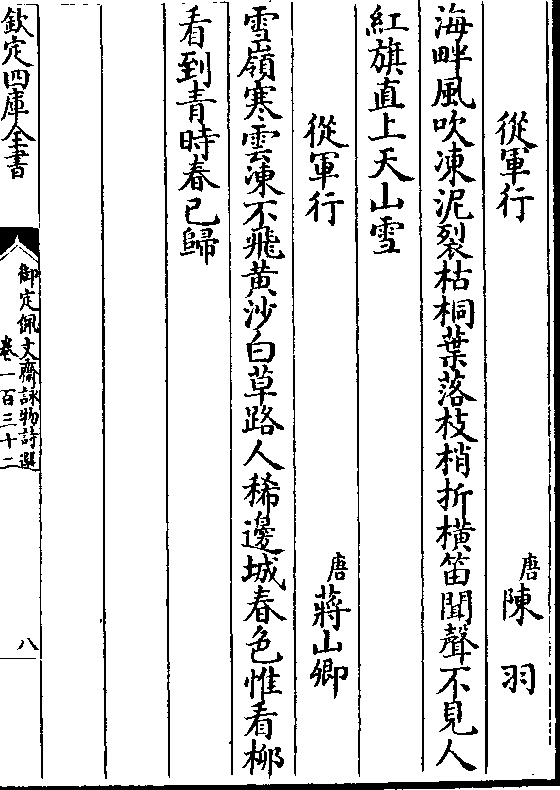 從軍行 唐 陳羽
海畔風吹凍泥裂枯桐葉落枝梢折橫笛聞聲不見人
紅旗直上天山雪
從軍行 唐 蔣山卿
雪嶺寒雲凍不飛黃沙白草路人稀邊城春色惟看柳
看到青時春已歸
欽定四庫全書
御定佩文齋詠物詩選
卷一百三十二
八